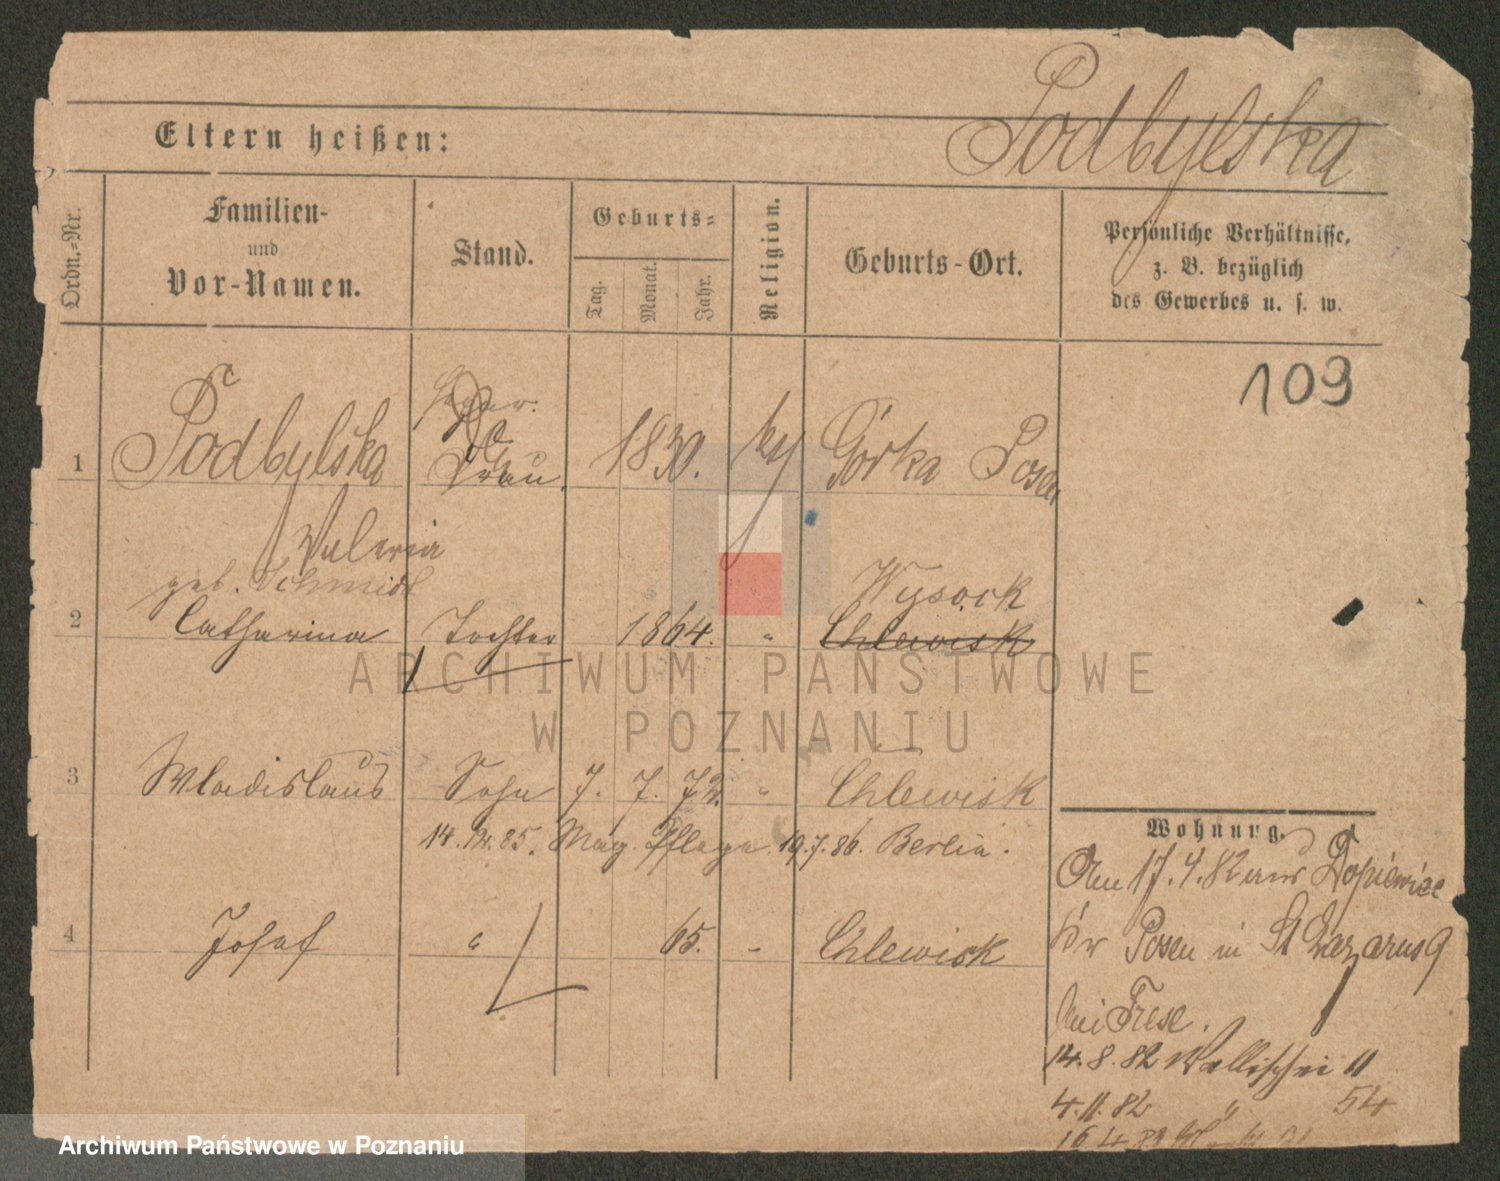 Podbylska
Eltern heißen:
Ordn.=Nr.
Familien-
und
Vor-Namen.
Stand.
Geburts=
Tag.
Monat.
Jahr.
Religion.
Geburts-Ort.
Persönliche Verhältnisse,
z. B. bezüglich
des Gewerbes u. s. w.
109
1 Podbylska Frau 1830. Górka Posen
Valeria
geb. Schmidt
Wysock
2 Catharina Tochter 1864. " Chlewisk
3 Wladislaus Sohn 7. 7. 72. " Chlewisk
14. 12. 85. Mag. Pflege 19.7.86. Berlin.
4 Josef " 65. - Chlewisk
Wohnung.
Am 17.4.82 aus Dopiewice
Kr Posen in St Lazarus 9
bei Frese.
14.8.82 Wallischei 11
4.11.82 " 54
16 4 83
ARCHIWUM PAŃSTWOWE
W POZNANIU
Archiwum Państwowe w Poznaniu